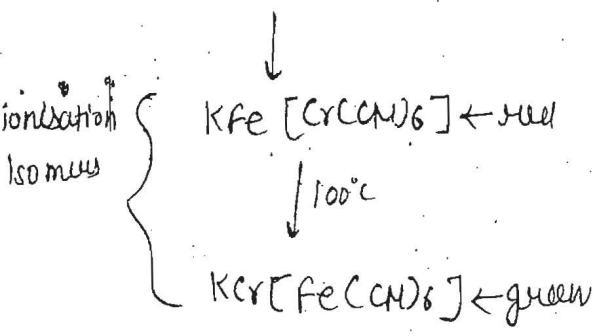 ionisation
Isomers
KFe [Cr(CN)6] ← red
100°C
KCr[Fe(CN)6] ← green